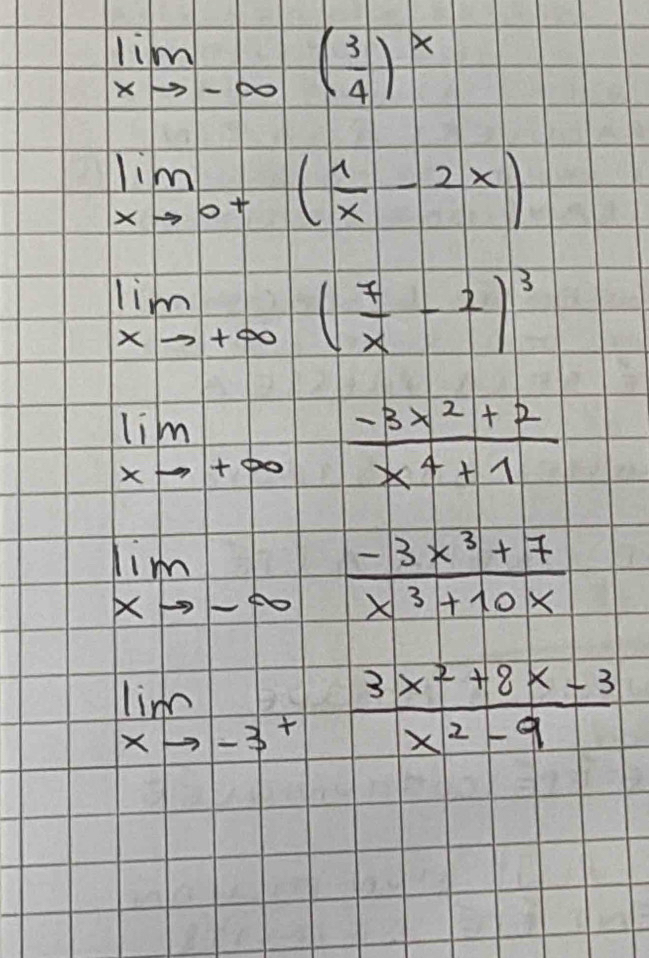 lim x → -∞ (3/4)^x
lim x → 0⁺ (1/x - 2x)
lim x → +∞ (7/x - 2)³
lim x → +∞ (-3x² + 2)/(x⁴ + 1)
lim x → -∞ (-3x³ + 7)/(x³ + 10x)
lim x → -3⁺ (3x² + 8x - 3)/(x² - 9)